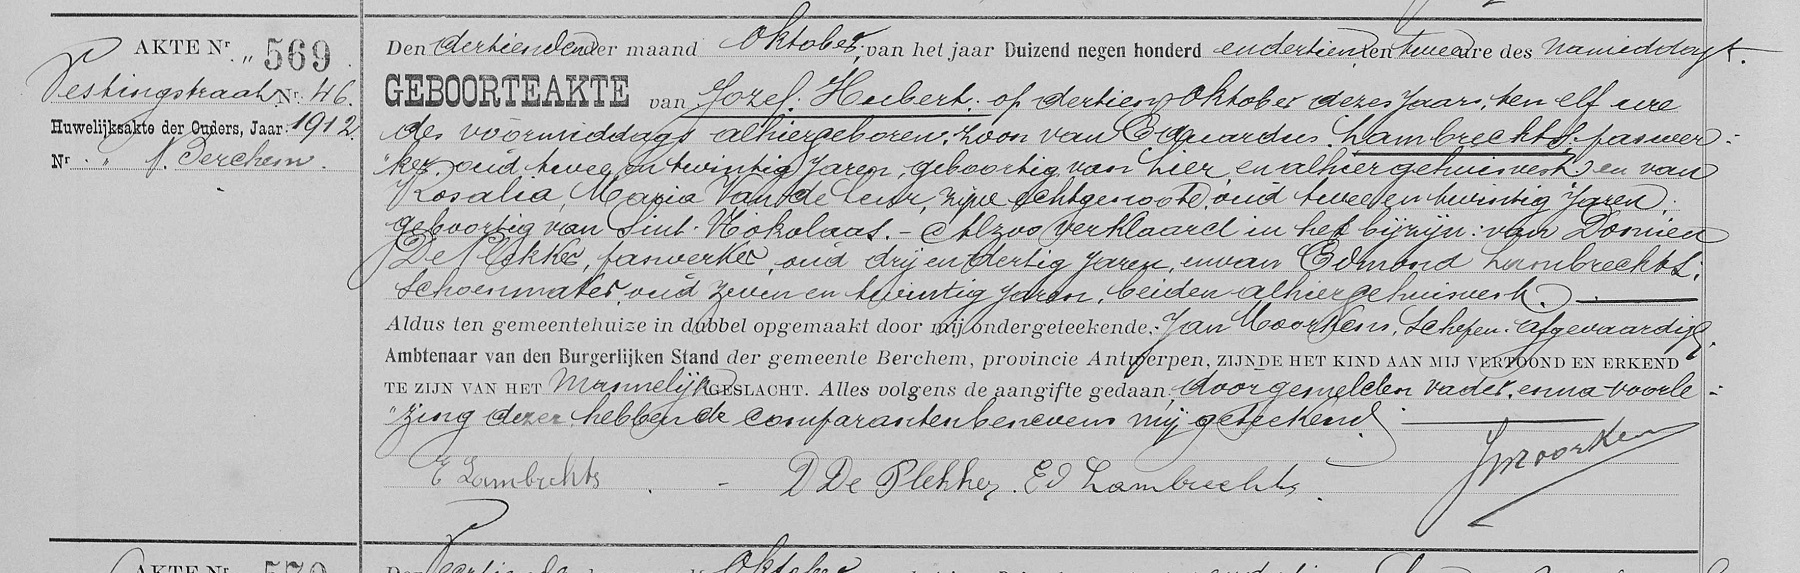 AKTE Nr. „ 569
Vestingstraat Nr. 46.
Huwelijksakte der Ouders, Jaar 1912.
Nr. „ Berchem.
Den dertienden der maand Oktober, van het jaar Duizend negen honderd en dertien, ten twee ure des namiddags.
GEBOORTEAKTE van Jozef Hubert. op dertien Oktober dezes jaars, ten elf ure
des voormiddags alhier geboren, zoon van Eduardus Lambrechts. paswer-
ker, oud twee en twintig jaren, geboortig van Lier, en alhier gehuisvest en van
Rosalia Maria Van de , zijne echtgenoote, oud twee en twintig jaren,
geboortig van Sint-Nikolaas. – Alzoo verklaard in het bijzijn: van Domien
De Plekker, paswerker, oud drij en dertig jaren, en van Edmond Lambrechts.
schoenmaker, oud zeven en twintig jaren, beiden alhier gehuisvest.
Aldus ten gemeentehuize in dubbel opgemaakt door mij ondergeteekende, Jan Moorkens, Schepen. afgevaardigd
Ambtenaar van den Burgerlijken Stand der gemeente Berchem, provincie Antwerpen, ZIJNDE HET KIND AAN MIJ VERTOOND EN ERKEND
TE ZIJN VAN HET Mannelijk GESLACHT. Alles volgens de aangifte gedaan, door gemelden vader. en na voorle-
„zing dezer hebben de comparanten benevens mij geteekend.
E Lambrechts D De Plekker Ed Lambrechts. J Moorkens
AKTE Nr. 570
Den Oktober